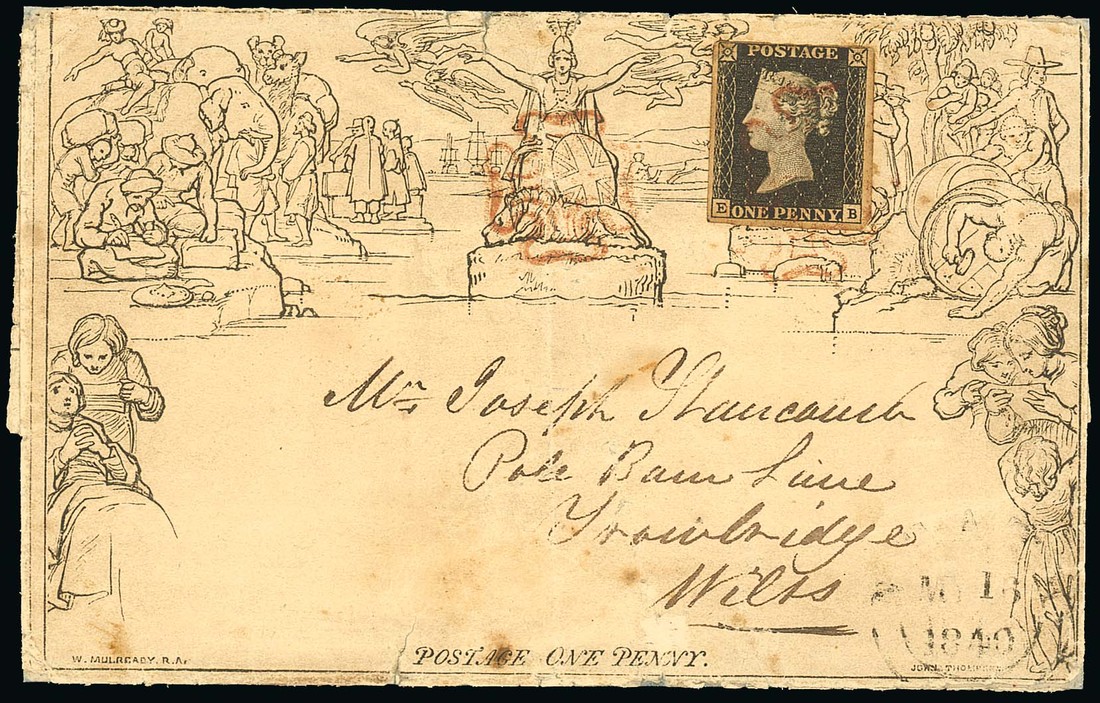 POSTAGE
ONE PENNY
E B
Mr. Joseph Stancomb
Pole Barn Lane
Trowbridge
Wilts
1840
W. MULREADY, R.A.
POSTAGE ONE PENNY.
JOHN THOMPSON